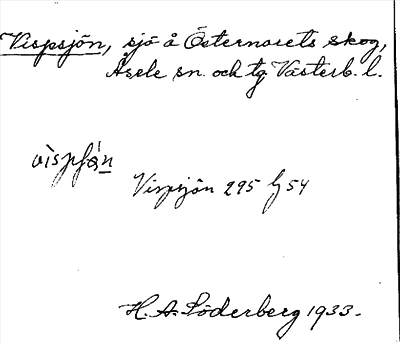 Vispsjön, sjö å Östernorets skog,
Åsele sn. och tg Västerb. l.
Vispsjön 295 54
H. A. Söderberg 1933.